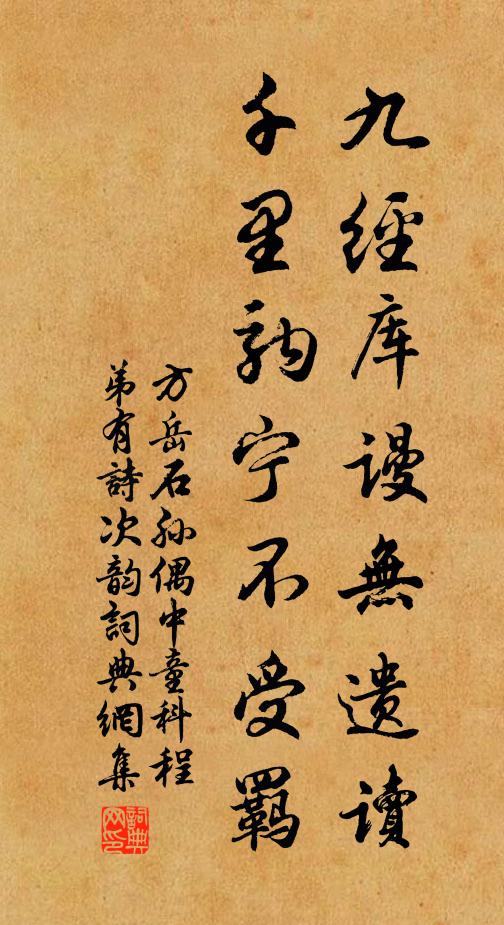 九經库謾無遗讀
千里駒宁不受羈
方岳石孫偶中童科程
弟有詩次韵詞典網集
詞典网印